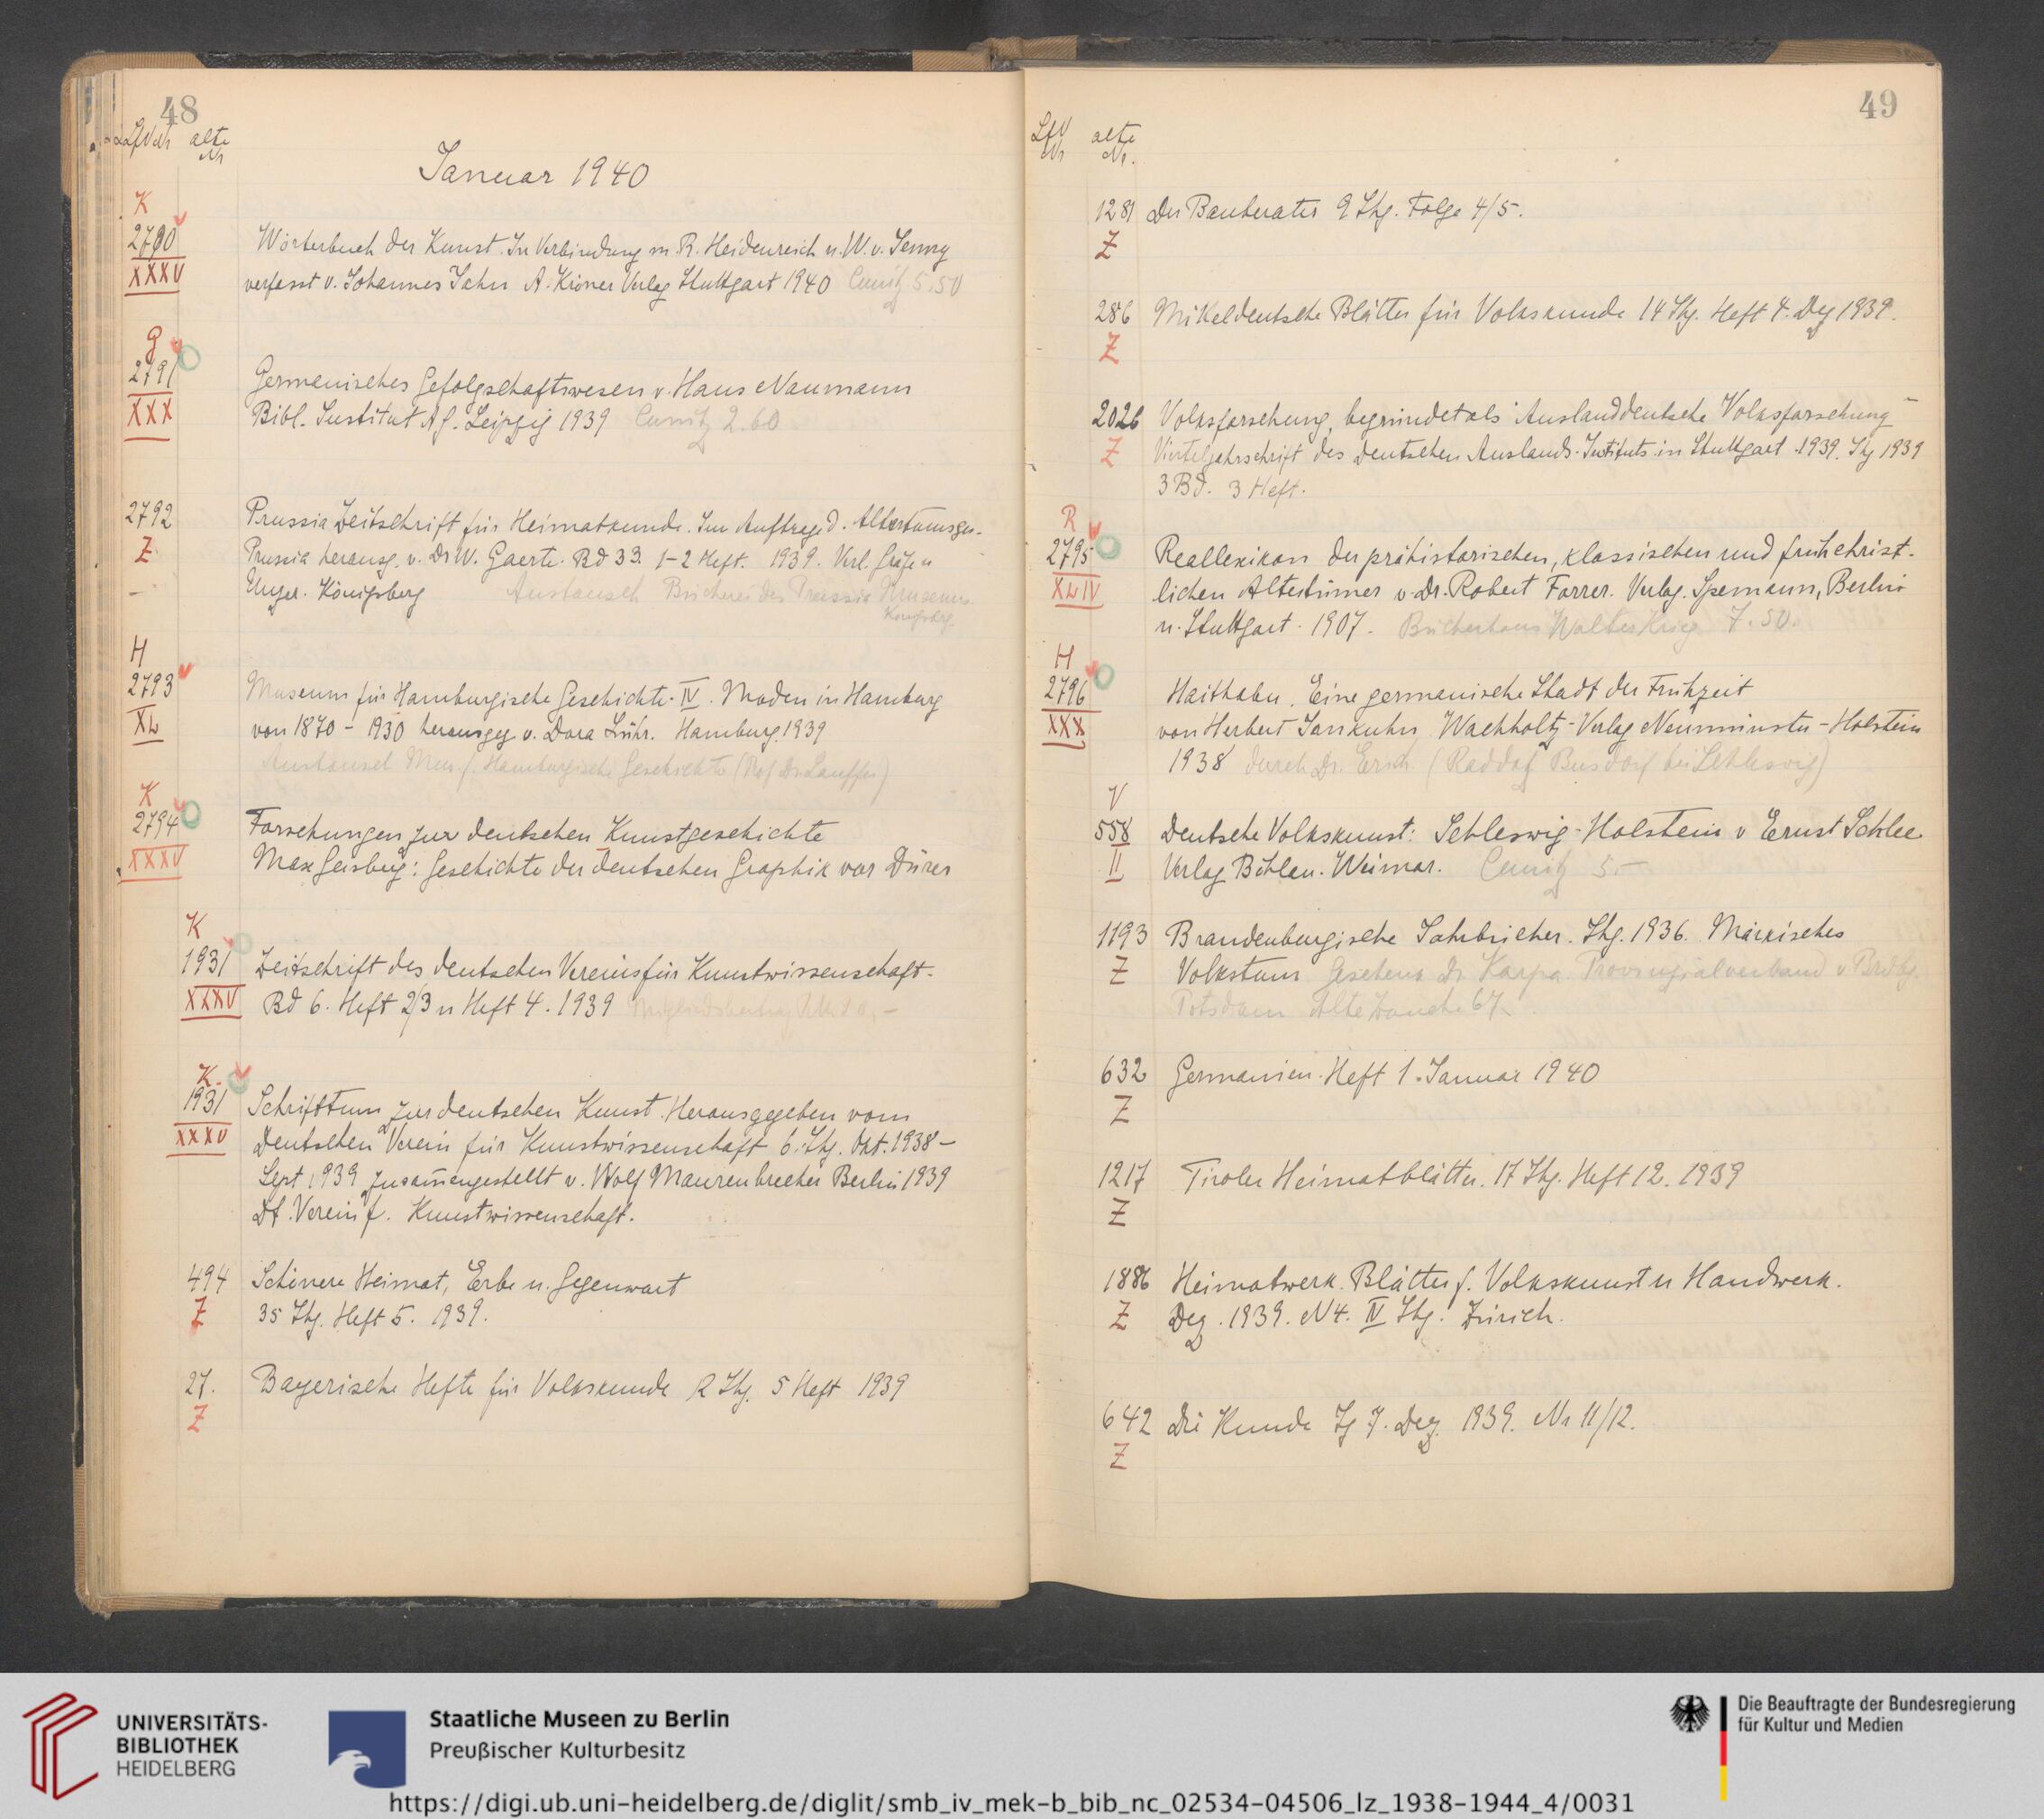 48
Lfd Nr alte Nr
Januar 1940
K
2790
XXXV
Wörterbuch der Kunst. In Verbindung m R. Heidenreich u. W. v. Jenny
verfasst v. Johannes Jahn A. Kröner Verlag Stuttgart 1940 Cunitz 5.50
G
2791
XXX
Germanisches Gefolgschaftswesen v. Hans Naumann
Bibl. Institut AG. Leipzig 1939 Cunitz 2.60
2792
Z
Prussia Zeitschrift für Heimatkunde. Im Auftrage d. Altertumsges.
Prussia herausg. v. Dr W. Gaerte. Bd 33. 1-2 Heft. 1939. Verl. Gräfe u
Unzer. Königsberg Austausch Bücherei des Prussia Museums
Königsbg.
H
2793
XL
Museum für Hamburgische Geschichte. IV. Moden in Hamburg
von 1870 - 1930 herausgeg v. Dora Lühr. Hamburg 1939
Austausch Mus. f. Hamburgische Geschichte (Prof Dr Lauffer)
K
2794
XXXV
Forschungen zur deutschen Kunstgeschichte
Max Geisberg: Geschichte der deutschen Graphik vor Dürer
K
1931
XXXV
Zeitschrift des deutschen Vereins für Kunstwissenschaft.
Bd 6. Heft 2/3 u Heft 4. 1939 Mitgliedsbeitrag
K.
1931
XXXV
Schrifttum zur deutschen Kunst. Herausgegeben vom
Deutschen Verein für Kunstwissenschaft 6. Jhg. Okt. 1938 -
Sept 1939 zusam̄engestellt v. Wolf Maurenbrecher Berlin 1939
Dt. Verein f. Kunstwissenschaft.
494
Z
Schönere Heimat, Erbe u. Gegenwart
35 Jhg. Heft 5. 1939.
27.
Z
Bayerische Hefte für Volkskunde 12 Jhg. 5 Heft 1939
49
Lfd Nr alte Nr.
1281 Der Bauberater 9 Jhg. Folge 4/5.
Z
286 Mitteldeutsche Blätter für Volkskunde 14 Jhg. Heft 4. Dez 1939.
Z
2026 Volksforschung, begründet als "Auslanddeutsche Volksforschung"
Z Vierteljahrschrift des Deutschen Auslands-Instituts in Stuttgart 1939. Jhg 1939
3 Bd. 3 Heft.
R
2795
XLIV
Reallexikon der prähistorischen, klassischen und frühchrist-
lichen Altertümer v. Dr. Robert Forrer. Verlag. Spemann, Berlin
u. Stuttgart. 1907. Bücherhaus Walter Krieg 7.50.
H
2796
XXX
Haithabu. Eine germanische Stadt der Frühzeit
von Herbert Jankuhn Wachholtz-Verlag Neumünster - Holstein
1938 durch Dr. (Raddaf Busdorf bei Schleswig)
V
558 Deutsche Volkskunst: Schleswig-Holstein v Ernst Schlee
II Verlag Böhlau. Weimar. Cunitz 5.-
1193 Brandenburgische Jahrbücher. Jhg. 1936. Märkisches
Z Volkstum Geschenk Dr. Karpa Provinzialverband v Brdbg.
Potsdam Alte Zauche 67
632 Germanien. Heft 1. Januar 1940
Z
1217 Tiroler Heimatblätter. 17 Jhg. Heft 12. 1939
Z
1886 Heimatwerk. Blätter f. Volkskunst u Handwerk.
Z Dez. 1939. N 4. IV Jhg. Zürich.
642 Die Kunde Jg 7. Dez. 1939. Nr 11/12.
Z
UNIVERSITÄTS-
BIBLIOTHEK
HEIDELBERG
Staatliche Museen zu Berlin
Preußischer Kulturbesitz
Die Beauftragte der Bundesregierung
für Kultur und Medien
https://digi.ub.uni-heidelberg.de/diglit/smb_iv_mek-b_bib_nc_02534-04506_lz_1938-1944_4/0031